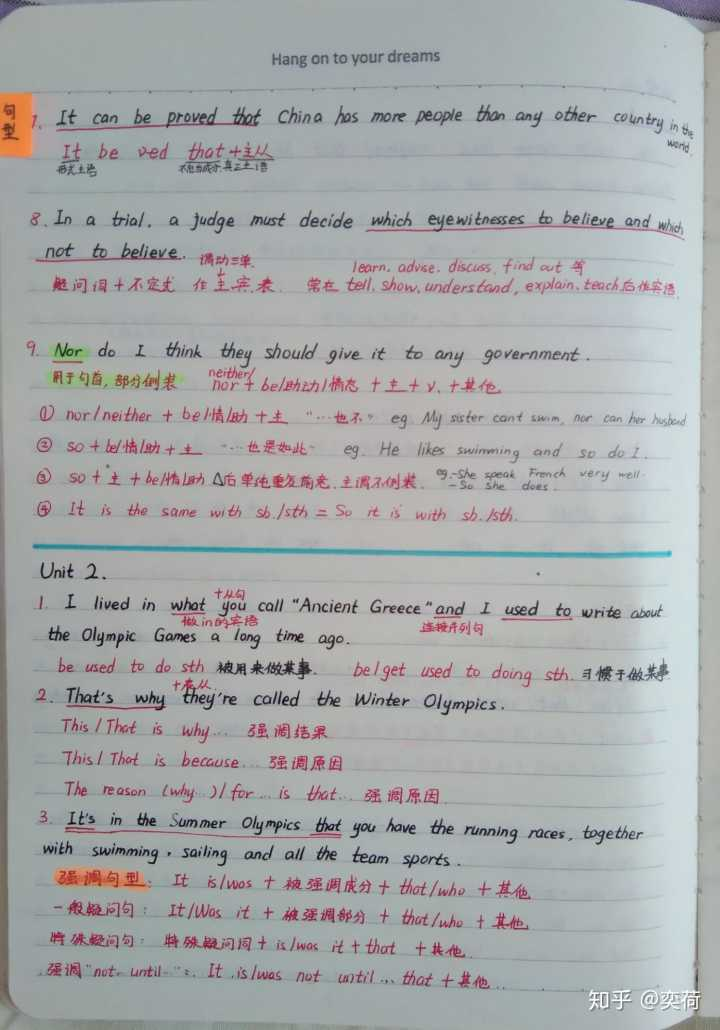 Hang on to your dreams
句型
7. It can be proved that China has more people than any other country in the world.
It be ved that+主从
形式主语 不担当成分 真正主语
8. In a trial, a judge must decide which eyewitnesses to believe and which
not to believe. 谓动三单 learn. advise. discuss, find out 等
疑问词+不定式 作主.宾.表. 常在 tell. show. understand, explain. teach后作宾语.
9. Nor do I think they should give it to any government.
用于句首, 部分倒装 neither/nor + be/助动/情态 + 主 + v. + 其他
① nor/neither + be/情/助 + 主 "…也不" eg. My sister cant swim, nor can her husband
② so + be/情/助 + 主 "…也是如此" eg. He likes swimming and so do I.
③ so + 主 + be/情/助 △后单纯重复前者. 主谓不倒装. eg.-She speak French very well.
- So she does.
④ It is the same with sb./sth = So it is with sb./sth.
Unit 2.
+从句
1. I lived in what you call "Ancient Greece" and I used to write about
做in的宾语 连接并列句
the Olympic Games a long time ago.
be used to do sth 被用来做某事. be/get used to doing sth. 习惯于做某事
+表从.
2. That's why they're called the Winter Olympics.
This / That is why... 强调结果
This / That is because... 强调原因
The reason (why...)/ for ... is that... 强调原因.
3. It's in the Summer Olympics that you have the running races, together
with swimming, sailing and all the team sports.
强调句型: It is/was + 被强调成分 + that/who + 其他
一般疑问句: It/Was it + 被强调部分 + that/who + 其他
特殊疑问句: 特殊疑问词 + is/was it + that + 其他.
强调"not… until…": It is/was not until ... that + 其他..
知乎 @奕荷